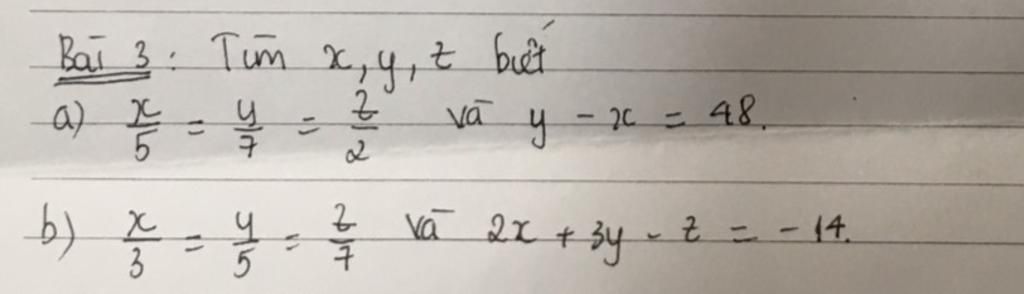 Bài 3: Tìm x, y, z biết
a) x/5 = y/7 = z/2 và y - x = 48.
b) x/3 = y/5 = z/7 và 2x + 3y - z = -14.